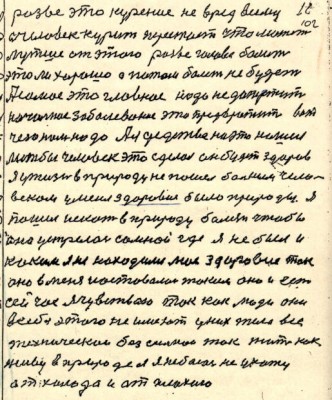 разве это курение не вред всему 12
а человек курит перестает ето может 102
лутше от этого разве голова болит
это ли хорошо а потом болит не будет
А самое это главное надо не допустить
никакое заболевание это предвратить вот
чего нам надо А я средства на это нашел
чтобы человек это сделал он будет здоров
Я у жизни в природу не пошел больным чело-
веком у меня здоровие было природы. Я
пошел искать в природу болезнь чтобы
она устрелась со мной где я не был и
каким я не находился мое здоровие так
оно в меня и оставалось таким оно и есть
сей час я чувствую так как люди они
в себя этого не имеют у них тело все
техническое без силное так жить как
живу в природе я я небога не нахожу
от холода и от плохого